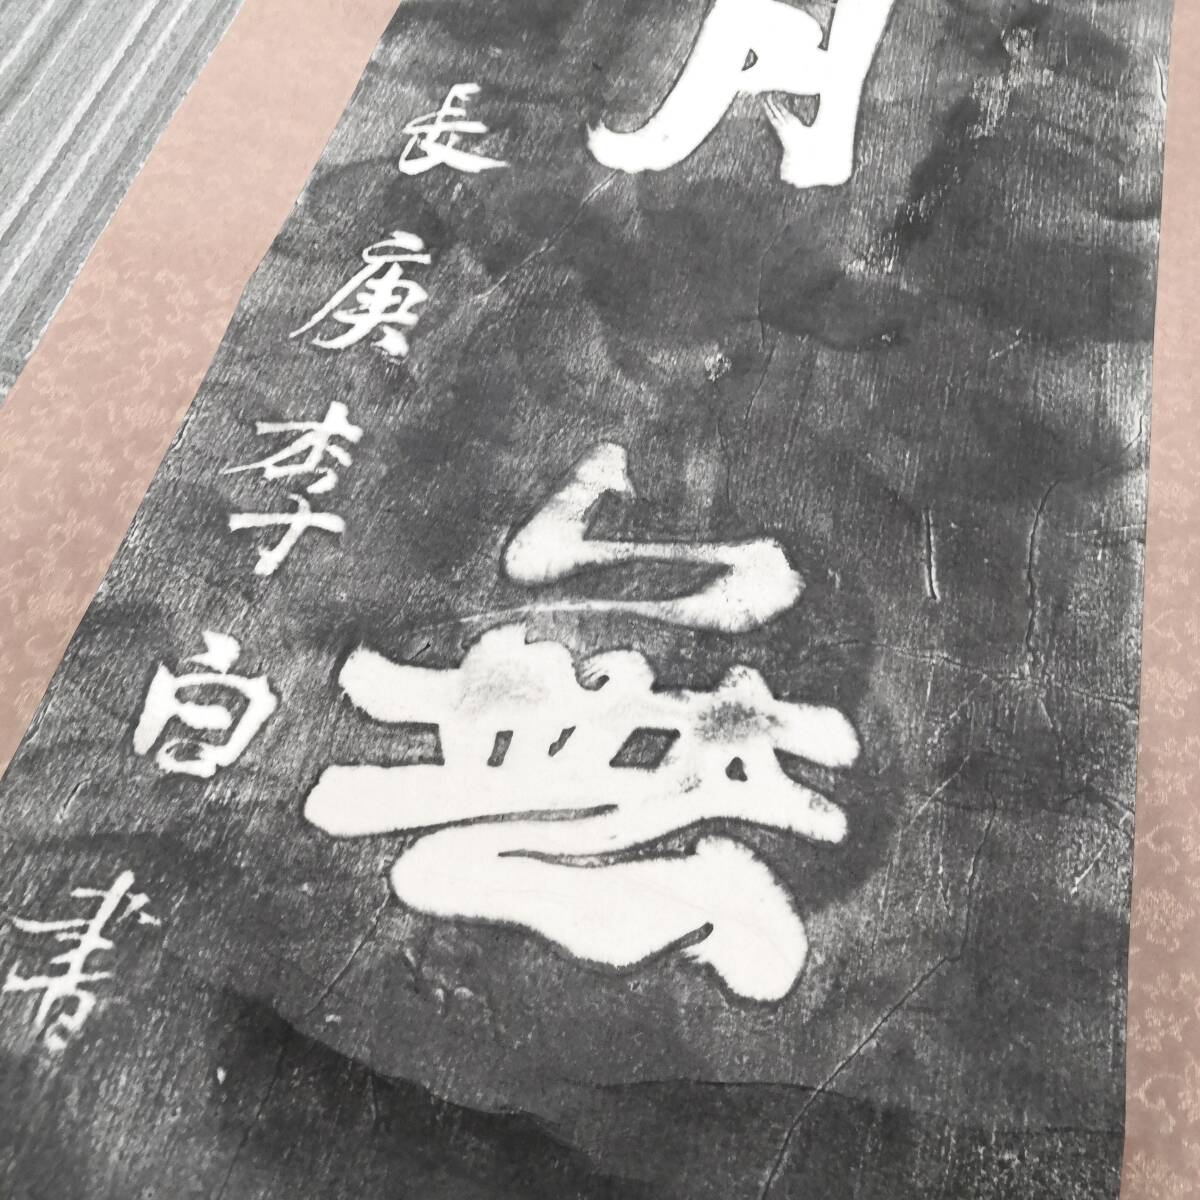 無
長庚李白書